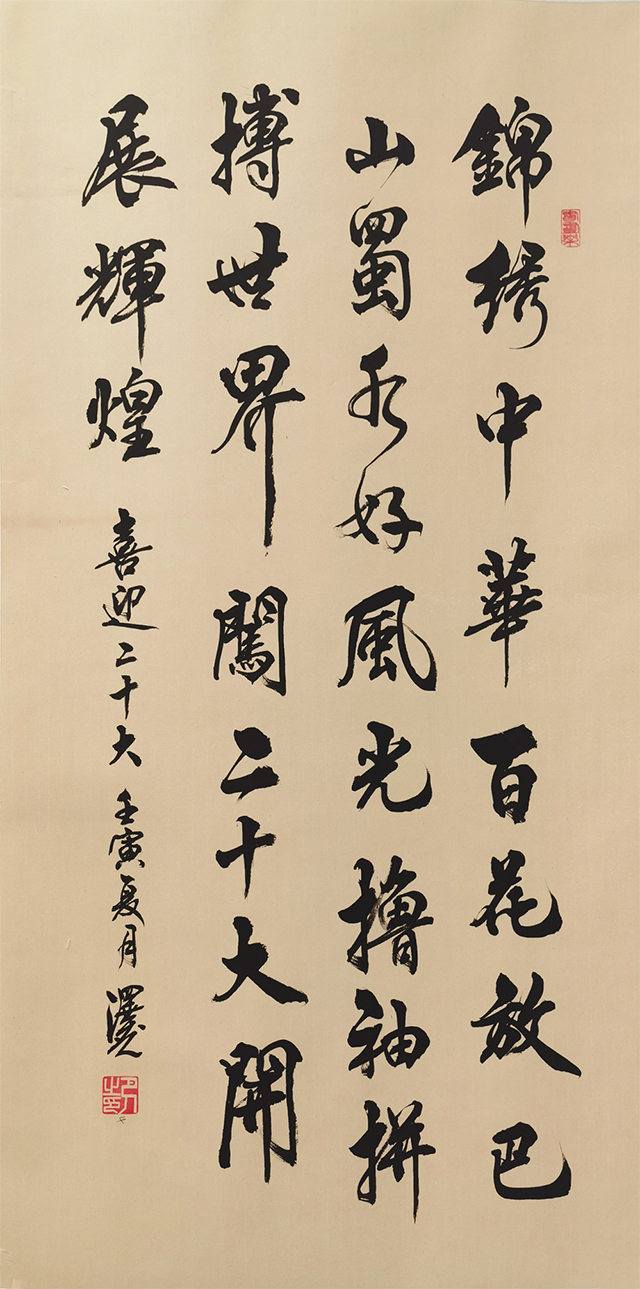 錦绣中華百花放巴
山蜀水好風光撸袖拼
搏世界闖二十大開
展輝煌
喜迎二十大 壬寅夏月